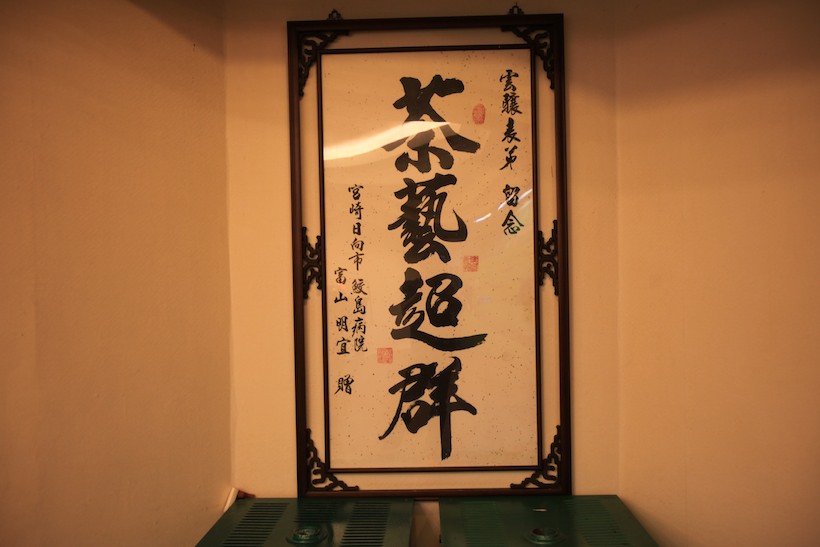 雲驤表弟 留念
茶藝超群
宮崎日向市 鮫島病院
富山明宜 贈